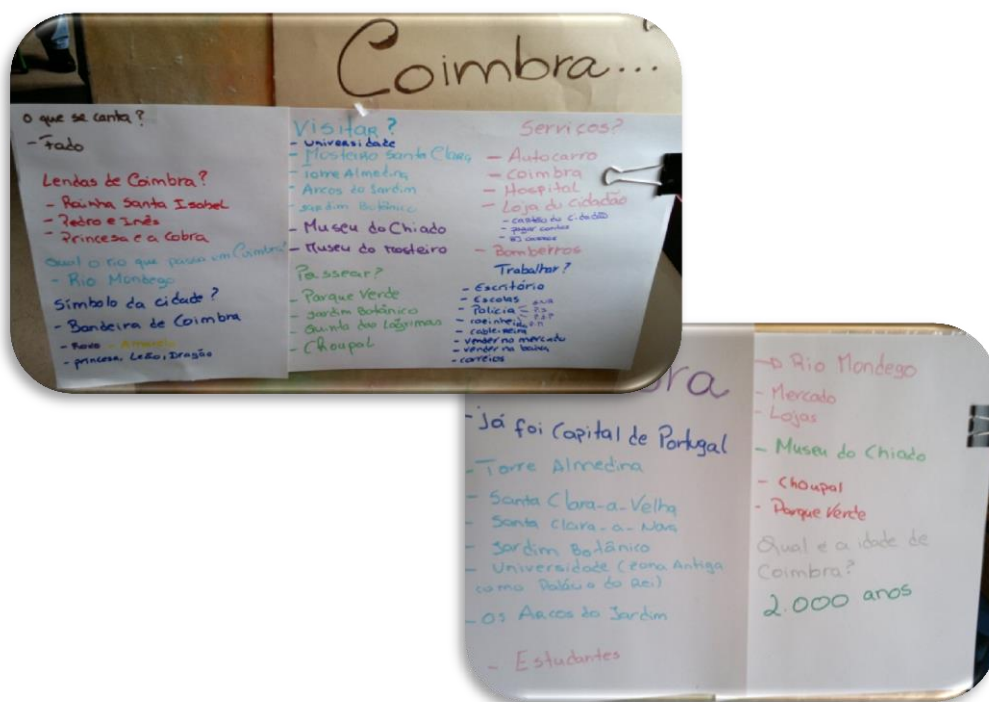 Coimbra...
O que se canta?
- Fado
Lendas de Coimbra?
- Rainha Santa Isabel
- Pedro e Inês
- Princesa e a Cobra
Qual o rio que passa em Coimbra?
- Rio Mondego
Símbolo da cidade?
- Bandeira de Coimbra
- Roxo - Amarelo
- princesa, Leão, Dragão
Visitar?
- Universidade
- Mosteiro Santa Clara
- Torre Almedina
- Arcos do Jardim
- Jardim Botânico
- Museu do Chiado
- Museu do Mosteiro
Passear?
- Parque Verde
- Jardim Botânico
- Quinta das Lágrimas
- Choupal
Serviços?
- Autocarro
- Coimbra
- Hospital
- Loja do Cidadão
- cartão do cidadão
- pagar contas
- Bombeiros
Trabalhar?
- Escritório
- Escolas
- Polícia
- cozinheira
- cabeleireira
- vender no mercado
- vender na baixa
- correios
bra
- Já foi Capital de Portugal
- Torre Almedina
- Santa Clara-a-Velha
- Santa Clara-a-Nova
- Jardim Botânico
- Universidade (zona Antiga
como Palácio do Rei)
- Os Arcos do Jardim
- Estudantes
- o Rio Mondego
- Mercado
- Lojas
- Museu do Chiado
- Choupal
- Parque Verde
Qual e a idade de
Coimbra?
2.000 anos